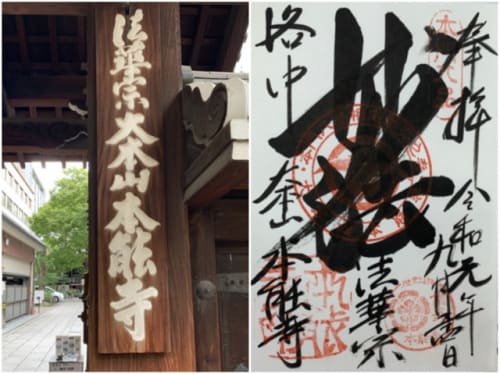 法華宗大本山本能寺
奉拝
令和元年九月日
妙法
法華宗
洛中 大本山 本能寺